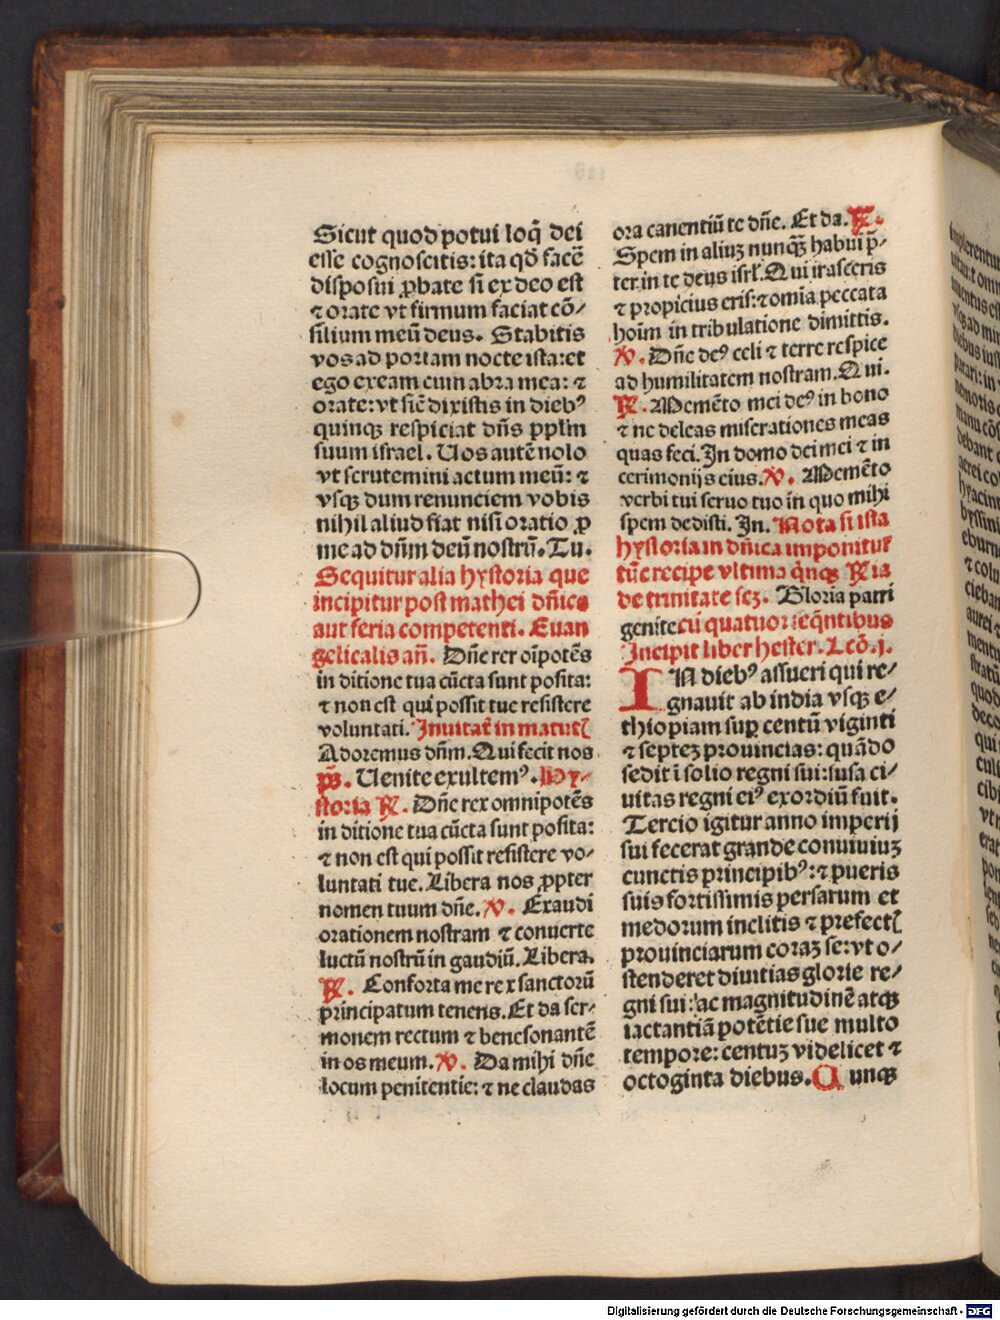 Sicut quod potui loq̃ dei
esse cognoscitis: ita qđ facē
disposui ꝓbate si ex deo est
⁊ orate vt firmum faciat cō⸗
silium meū deus. Stabitis
vos ad portam nocte ista: et
ego exeam cum abra mea: ⁊
orate: vt sič dixistis in diebꝰ
quinqꝫ respiciat dñs pplm̄
suum israel. Uos autē nolo
vt scrutemini actum meū: ⁊
vsqꝫ dum renunciem vobis
nihil aliud fiat nisi oratio ꝓ
me ad dñm deū nostrū. Tu.
Sequitur alia hystoria que
incipitur post mathei dñica
aut feria competenti. Euan
gelicalis añ. Dñe rex oīpotēs
in ditione tua cūcta sunt posita:
⁊ non est qui possit tue resistere
voluntati. Inuitat̉ in matutꝭ
Adoremus dñm. Qui fecit nos
p̄s. Uenite exultemꝰ. Hy⸗
storia ℟. Dñe rex omnipotēs
in ditione tua cūcta sunt posita:
⁊ non est qui possit resistere vo⸗
luntati tue. Libera nos ꝓpter
nomen tuum dñe. ℣. Exaudi
orationem nostram ⁊ conuerte
luctū nostrū in gaudiū. Libera.
℟. Conforta me rex sanctorū
principatum tenens. Et da ser⸗
monem rectum ⁊ benesonantē
in os meum. ℣. Da mihi dñe
locum penitentie: ⁊ ne claudas
ora canentiū te dñe. Et da. ℟.
Spem in aliuꝫ nunqꝫ̄ habui p̄⸗
ter in te deus isrl̄. Qui irasceris
⁊ propicius eris: ⁊ omīa peccata
hoīm in tribulatione dimittis.
℣. Dñe deꝰ celi ⁊ terre respice
ad humilitatem nostram. Qui.
℟. Memēto mei deꝰ in bono
⁊ ne deleas miserationes meas
quas feci. In domo dei mei ⁊ in
cerimonijs eius. ℣. Memēto
verbi tui seruo tuo in quo mihi
spem dedisti. In. Nota si ista
hystoria in dñica imponitur
tūc recipe vltima q̇nqꝫ ℟ia
de trinitate scꝫ. Gloria patri
genite. cū quatuor seq̄ntibus
Incipit liber hester. Lcō. j.
IN diebꝰ assueri qui re⸗
gnauit ab india vsqꝫ e⸗
thiopiam suꝑ centū viginti
⁊ septeꝫ prouincias: quādo
sedit ī solio regni sui: susa ci⸗
uitas regni eiꝰ exordiū fuit.
Tercio igitur anno imperij
sui fecerat grande conuiuiuꝫ
cunctis principibꝰ: ⁊ pueris
suis fortissimis persarum et
medorum inclitis ⁊ prefectꝭ
prouinciarum coraꝫ se: vt o⸗
stenderet diuitias glorie re⸗
gni sui: ac magnitudinē atqꝫ
iactantiā potētie sue multo
tempore: centuꝫ videlicet ⁊
octoginta diebus. Cunqꝫ
Digitalisierung gefördert durch die Deutsche Forschungsgemeinschaft - DFG